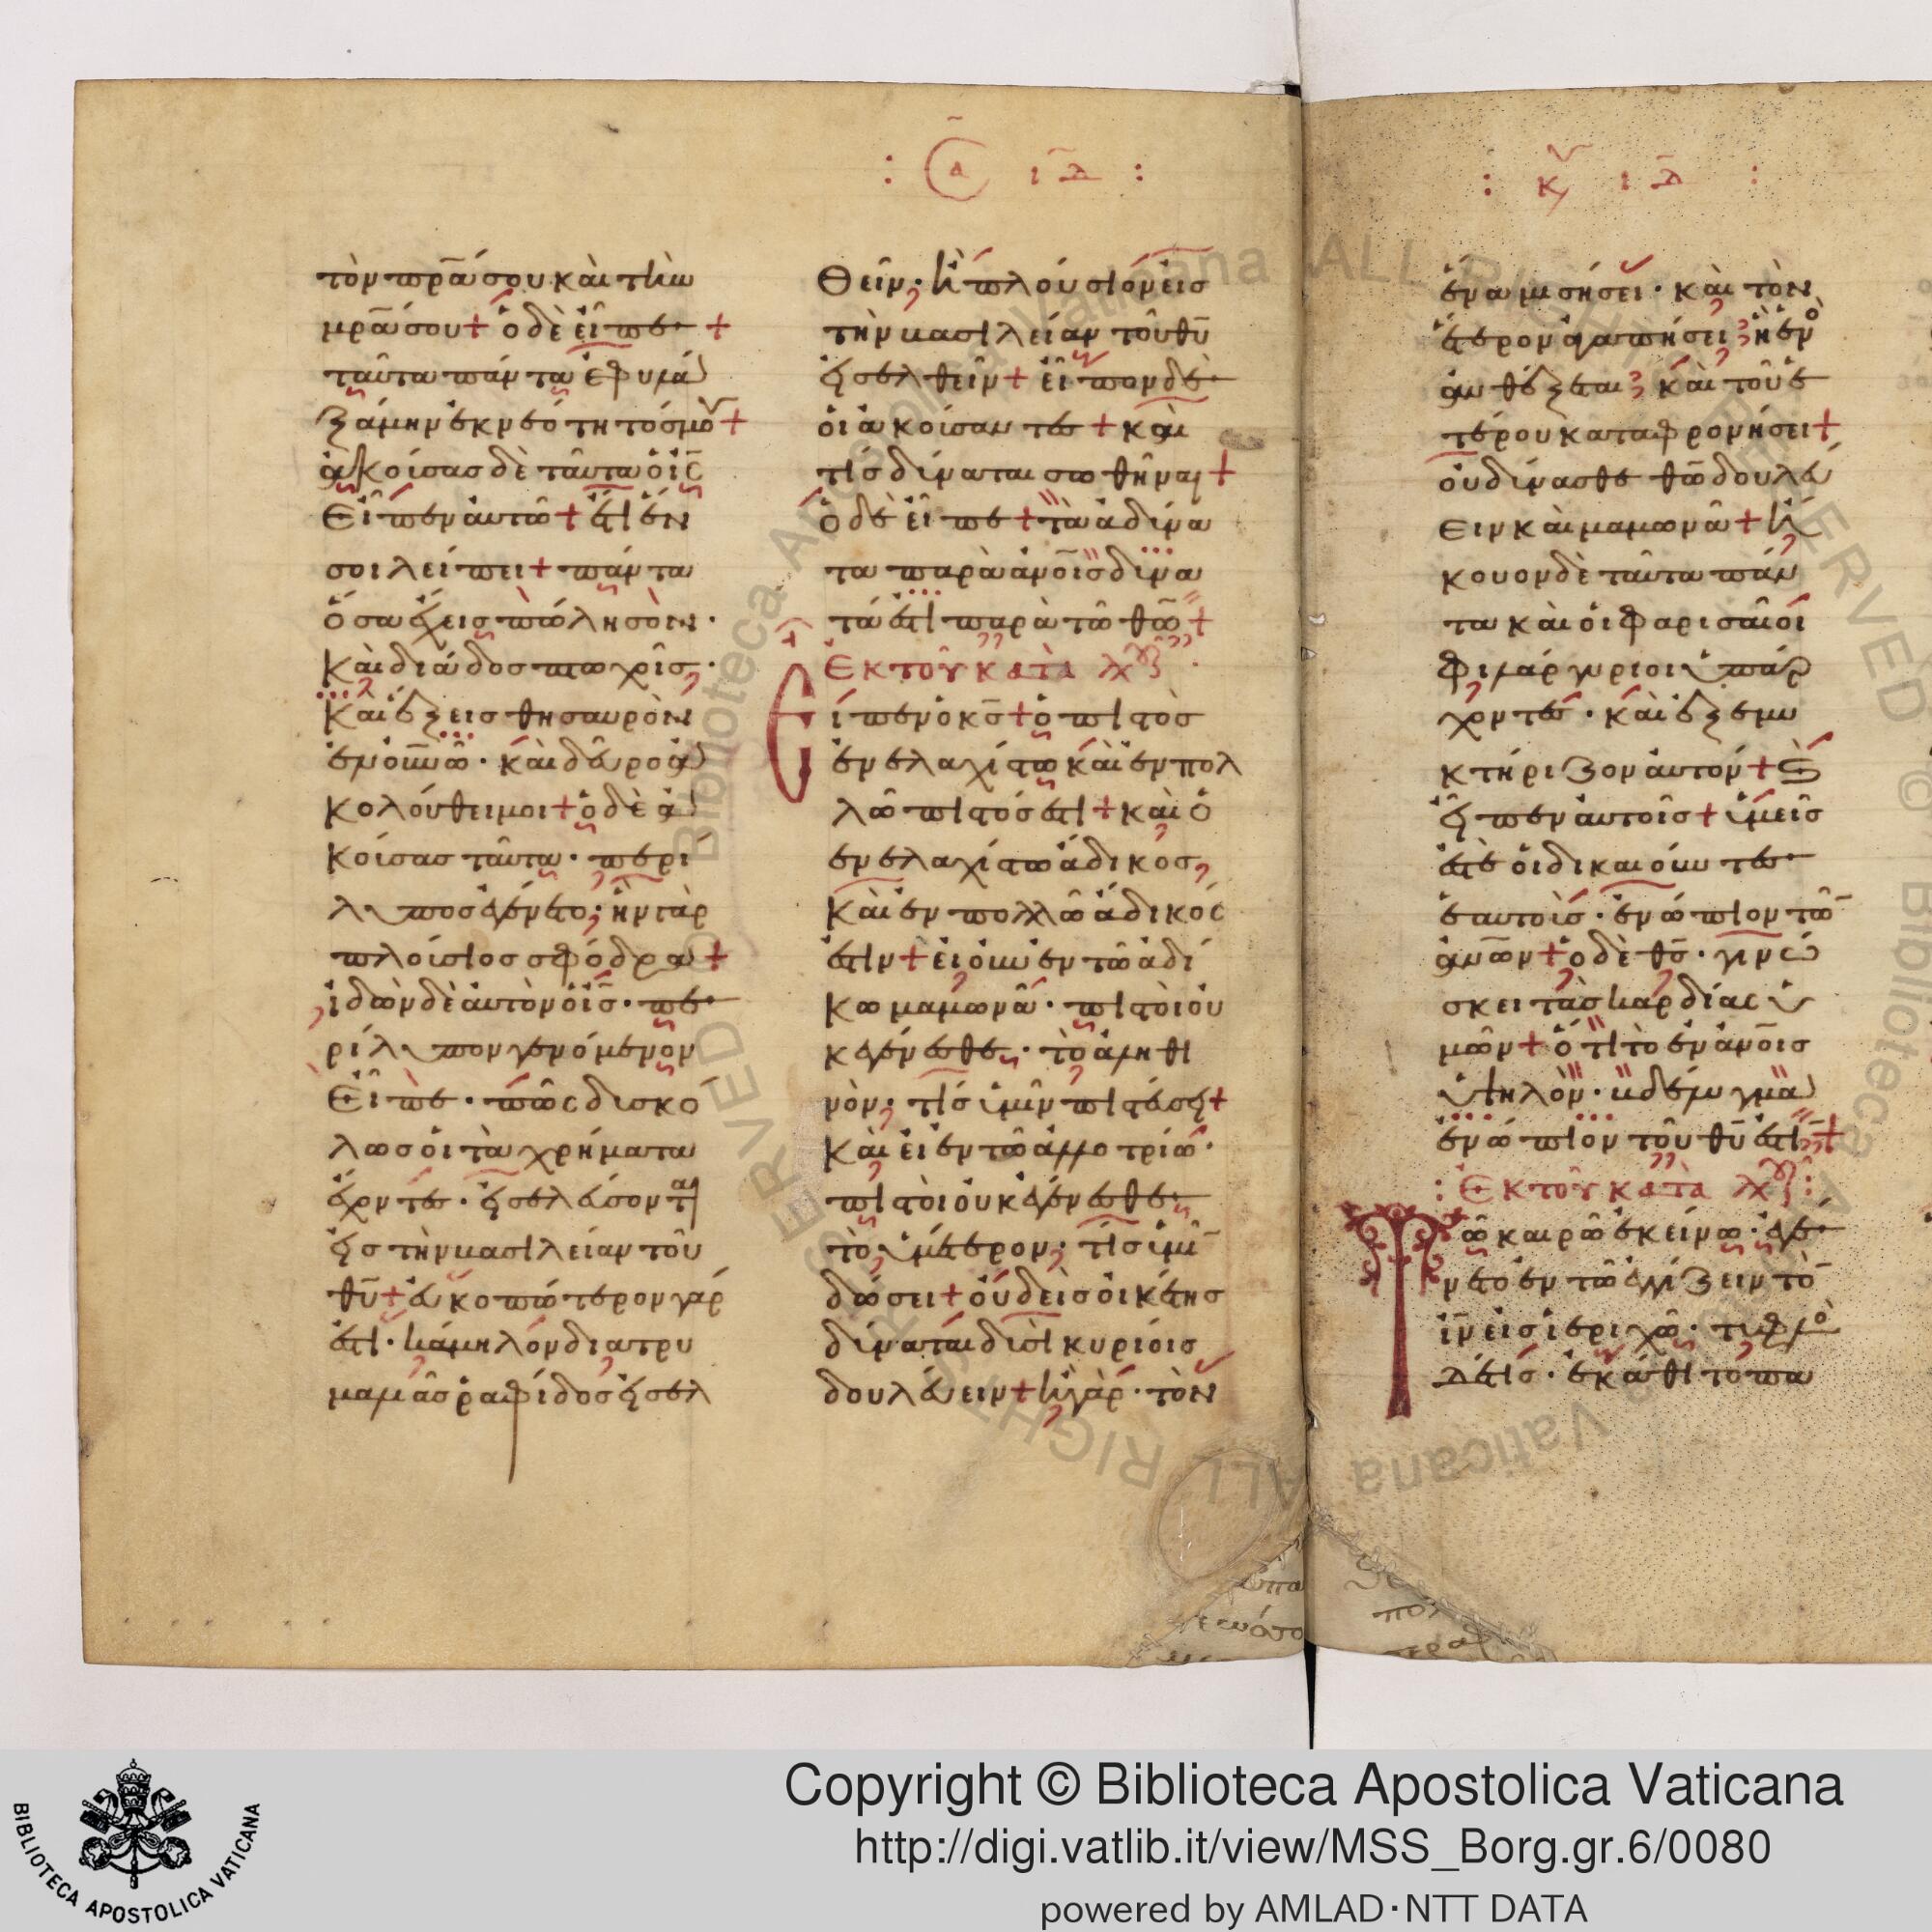 : α ιδ :
τὸν πρ̅α σου καὶ τὴν
μρ̅α σου + ὁ δὲ εἶπε +
ταῦτα πάντα ἐφυλα
ξάμην ἐκ νεότητός μου +
ἀκοίσας δὲ ταῦτα ὁ ις̅
Εἶπεν αὐτῶ + ἔτι ἕν
σοι λείπει + πάντα
ὅσα ἔχεις πώλησον ·
Καὶ διάδος πτωχοῖς ·
Καὶ ἕξεις θησαυρὸν
ἐν οὐνῶ · καὶ δεῦρο ἀ
κολούθει μοι + ὁ δὲ ἀ
κοίσας ταῦτα · περί
λυπος ἐγένετο · ἦν γὰρ
πλοίσιος σφόδρα +
ἰδὼν δὲ αὐτὸν ὁ ις̅ · πε
ρίλυπον γενόμενον
Εἶπε · πῶς δισκό
λως οἱ τὰ χρήματα
ἔχοντες · εἰσελεύσονται
εἰς τὴν βασιλείαν τοῦ
θυ̅ + εὐκοπώτερον γάρ
ἐστι · κάμηλον διὰ τρυ
μαλιᾶς ῥαφίδος εἰσελ
θεῖν · ἢ πλούσιον εἰς
τὴν βασιλείαν τοῦ θυ̅
εἰσελθεῖν + εἶπον δὲ
οἱ ἀκοίσαντες + καὶ
τίς δίναται σωθῆναι +
ὁ δὲ εἶπε + τὰ ἀδίνα
τα παρὰ ἀνο̅ις δινα
τά ἐστι παρὰ τῶ θω̅ +
Ἐκ τοῦ κατὰ λουκ
Εἶπεν ὁ κς̅ + ὁ πιστὸς
ἐν ἐλαχίστω καὶ ἐν πολ
λῶ πιστός ἐστι + καὶ ὁ
ἐν ἐλαχίστω ἄδικος,
Καὶ ἐν πολλῶ ἄδικός
ἐστιν + εἰ οὖν ἐν τῶ ἀδί
κω μαμωνᾶ · πιστοὶ οὐ
κ ἐγένεσθε · τὸ ἀληθι
νὸν · τίς ὑμῖν πιστεύσει +
Καὶ εἰ ἐν τῶ ἀλλοτρίω ·
πιστοὶ οὐκ ἐγένεσθε ·
τὸ ὑμέτερον · τίς ὑμῖ
δώσει + οὐδεὶς οἰκέτης
δίναται δισὶ κυρίοις
δουλεύειν + ἢ γὰρ · τὸν
: κυ ιδ :
ἕνα μισήσει · καὶ τὸν
ἕτερον ἀγαπήσει · ἢ ἑνὸ
ἀνθέξεται · καὶ τοῦ ἑ
τέρου καταφρονήσει +
οὐ δίνασθε θω̅ δουλεύ
ειν καὶ μαμωνᾶ + ἤ
κουον δὲ ταῦτα πάν
τα καὶ οἱ φαρισαῖοι
φιλάργυριοι ὑπάρ
χοντες · καὶ ἐξεμυ
κτήριζον αὐτόν + καὶ
εἶπεν αὐτοῖς + ὑμεῖς
ἐστὲ οἱ δικαιοῦντες
ἑαυτοὺς · ἐνώπιον τῶ
ἀνω̅ν + ὁ δὲ θς̅ · γινώ
σκει τὰς καρδίας ὑ
μῶν + ὅτι τὸ ἐν ἀνο̅ις
ὑψηλὸν · βδέλυγμα
ἐνώπιον τοῦ θυ̅ ἐστι +
: Ἐκ τοῦ κατὰ λουκ :
Τῶ καιρῶ ἐκείνω · ἐγέ
νετο ἐν τῶ ἐγγίζειν τὸ
ιν̅ εἰς ἱεριχῶ · τυφλό
ς τις · ἐκάθιτο πα
Copyright © Biblioteca Apostolica Vaticana
http://digi.vatlib.it/view/MSS_Borg.gr.6/0080
powered by AMLAD·NTT DATA
BIBLIOTECA APOSTOLICA VATICANA